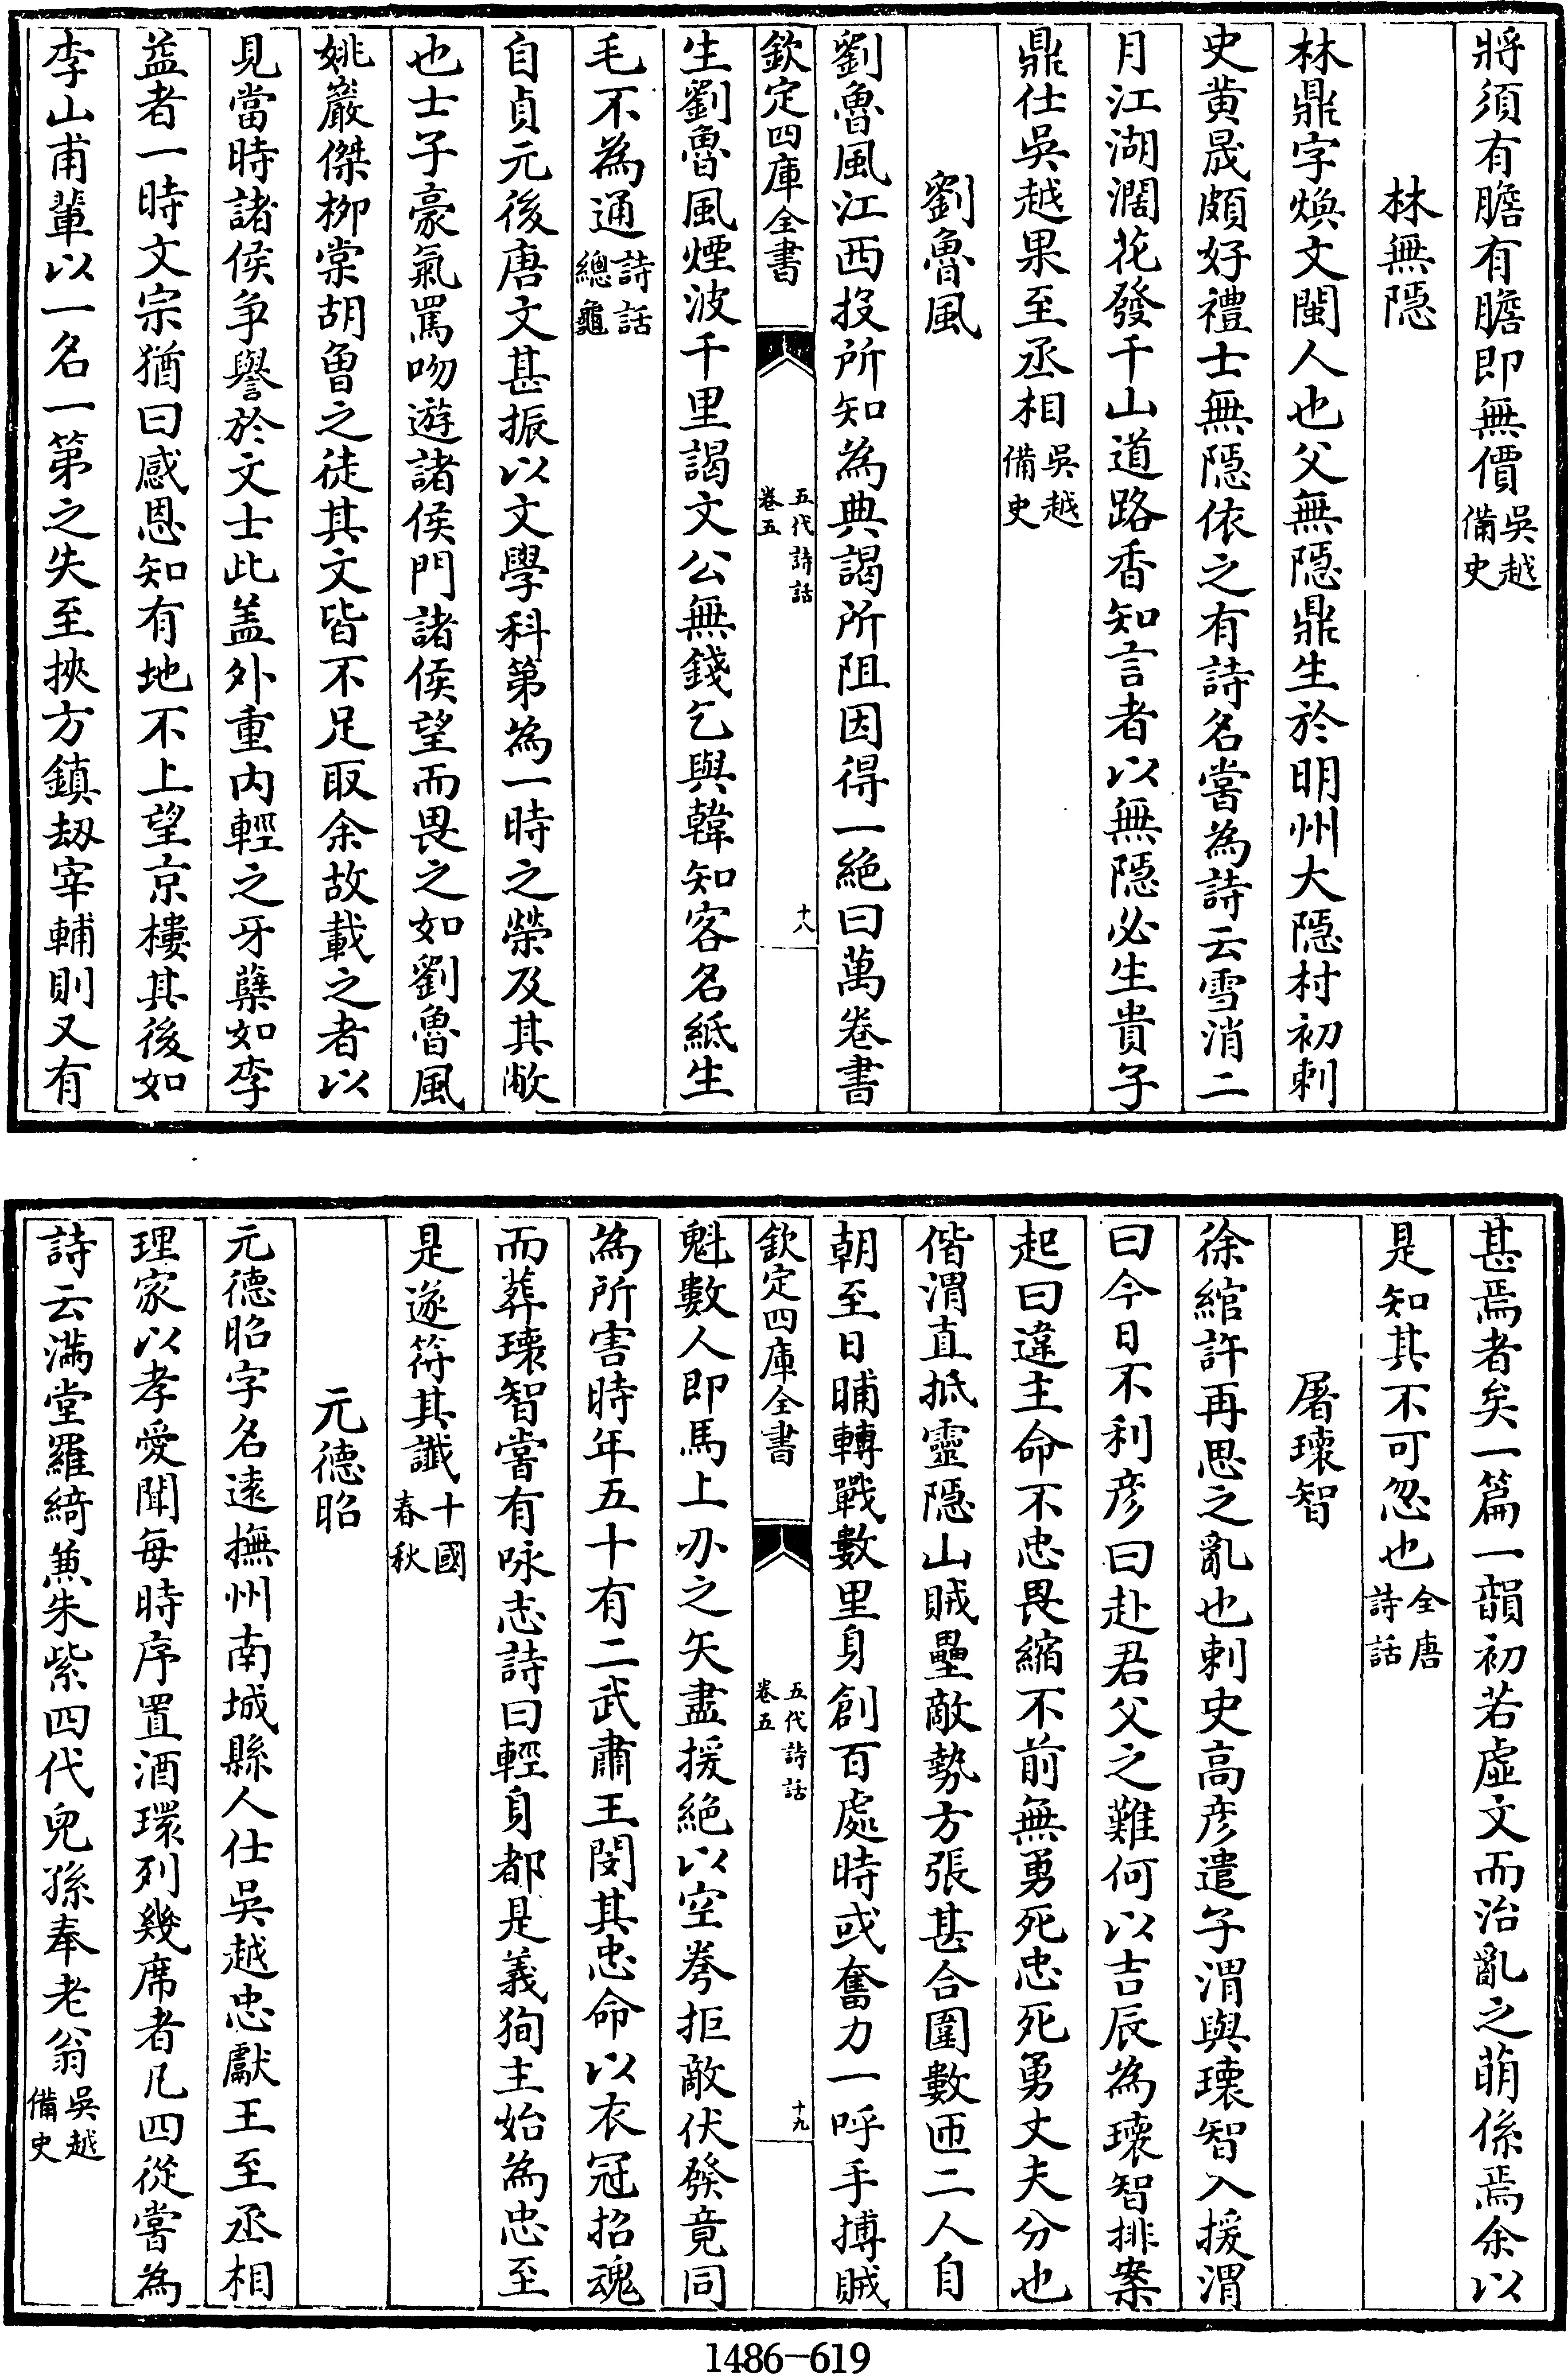 將須有膽有膽即無價吳越備史
林無隱
林鼎字煥文閩人也父無隱鼎生於明州大隱村初刺
史黄晟頗好禮士無隱依之有詩名嘗為詩云雪消二
月江湖濶花發千山道路香知言者以無隱必生貴子
鼎仕吳越果至丞相吳越備史
劉魯風
劉魯風江西投所知為典謁所阻因得一絶曰萬卷書
欽定四庫全書 五代詩話卷五 十八
生劉魯風煙波千里謁文公無錢乞與韓知客名紙生
毛不為通詩話總龜
自貞元後唐文甚振以文學科第為一時之榮及其敝
也士子豪氣罵吻遊諸侯門諸侯望而畏之如劉魯風
姚巖傑栁棠胡曾之徒其文皆不足取余故載之者以
見當時諸侯争譽於文士此盖外重内輕之牙蘖如李
益者一時文宗猶曰感恩知有地不上望京樓其後如
李山甫輩以一名一第之失至挾方鎮刼宰輔則又有
甚焉者矣一篇一韻初若虚文而治亂之萌係焉余以
是知其不可忽也全唐詩話
屠瓌智
徐綰許再思之亂也刺史高彦遣子渭與瓌智入援渭
曰今日不利彦曰赴君父之難何以吉辰為瓌智排案
起曰違主命不忠畏縮不前無勇死忠死勇丈夫分也
偕渭直抵靈隱山賊壘敵勢方張甚合圍數匝二人自
朝至日晡轉戰數里身創百處時或奮力一呼手搏賊
欽定四庫全書 五代詩話卷五 十九
魁數人即馬上刅之矢盡援絶以空拳拒敵伏發竟同
為所害時年五十有二武肅王閔其忠命以衣冠招魂
而葬瓌智嘗有咏志詩曰輕身都是義狥主始為忠至
是遂符其讖十國春秋
元德昭
元德昭字名逺撫州南城縣人仕吳越忠獻王至丞相
理家以孝愛聞每時序置酒環列幾席者凡四從嘗為
詩云滿堂羅綺兼朱紫四代兒孫奉老翁吳越備史
1486-619